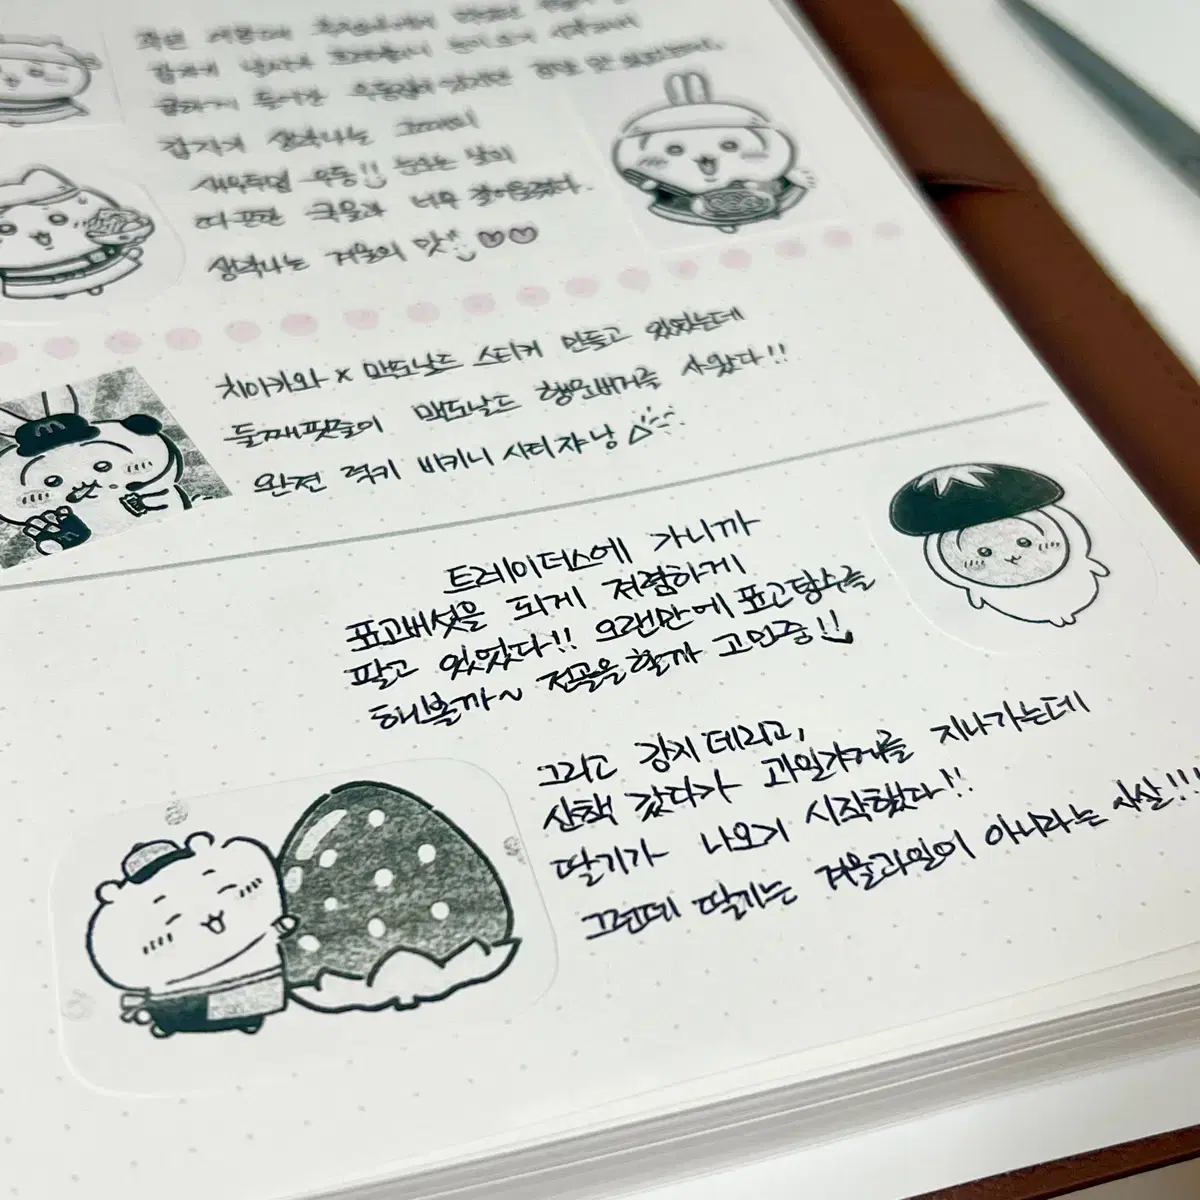 갑자기 생각나는 그때의
새우튀김 우동!! 눈오는 날의
따끈한 국물과 너무 잘어울렸다.
생각나는 겨울의 맛
치이카와 x 맥도날드 스티커 만들고 있었는데
둘째핏줄이 맥도날드 행운버거를 사왔다!!
완전 럭키 비키니시티쟈낭
트레이더스에 가니까
표고버섯을 되게 저렴하게
팔고 있었다!! 오랜만에 표고탕수를
해볼까~ 전골을 할까 고민중!!
그리고 강지 데리고,
산책 갔다가 과일가게를 지나가는데
딸기가 나오기 시작했다!!
그런데 딸기는 겨울과일이 아니라는 사실!!!